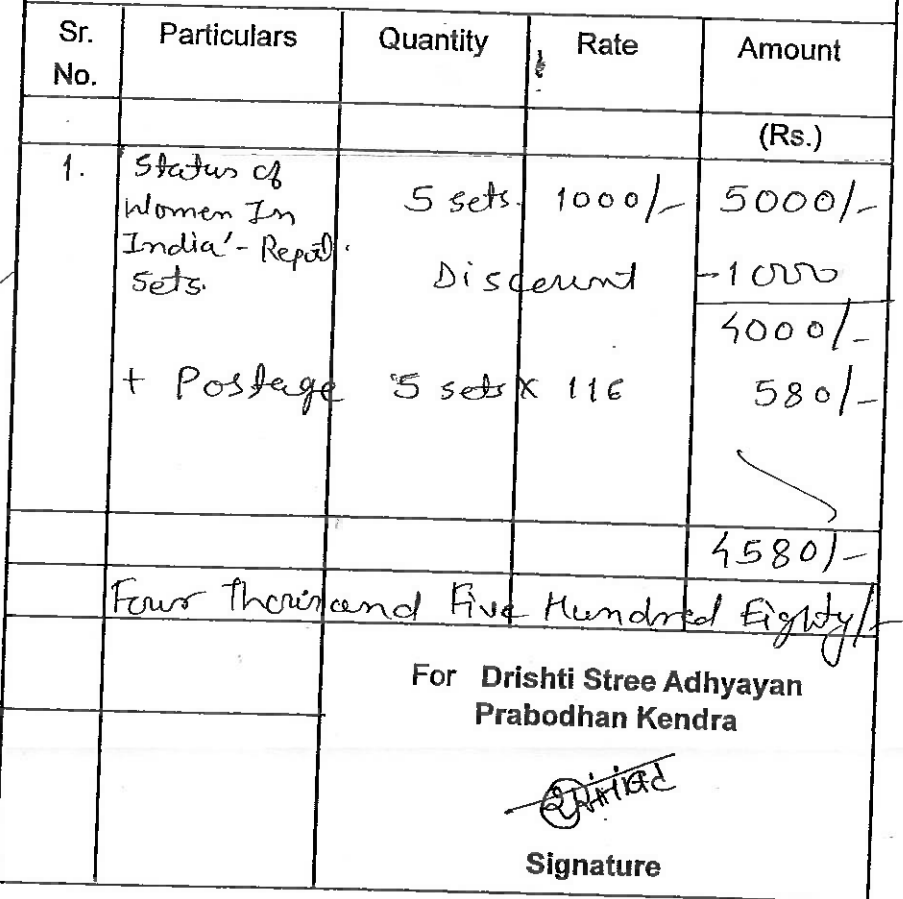 Sr. No. Particulars Quantity Rate Amount
(Rs.)
1. Status of
Women In 5 sets. 1000/- 5000/-
India' - Report.
Sets. Discount -1000
4000/-
+ Postage 5 sets x 116 580/-
4580/-
Four Thousand Five Hundred Eighty/-
For Drishti Stree Adhyayan
Prabodhan Kendra
Signature